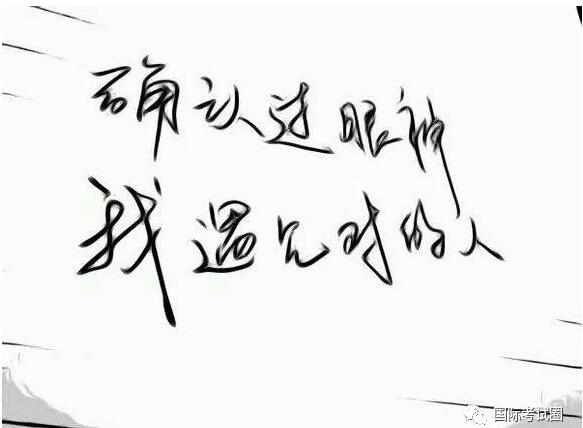 确认过眼神
我遇见对的人
国际考试圈